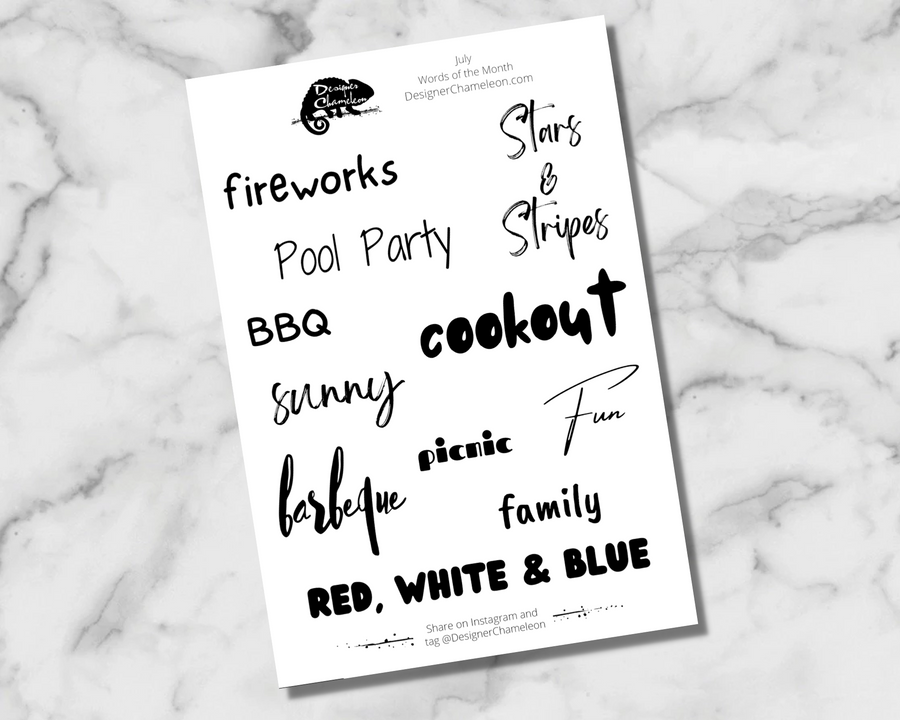 Designer
Chameleon
July
Words of the Month
DesignerChameleon.com
Stars
&
Stripes
fireworks
Pool Party
BBQ
cookout
sunny
Fun
picnic
barbeque
family
RED, WHITE & BLUE
Share on Instagram and
tag @DesignerChameleon